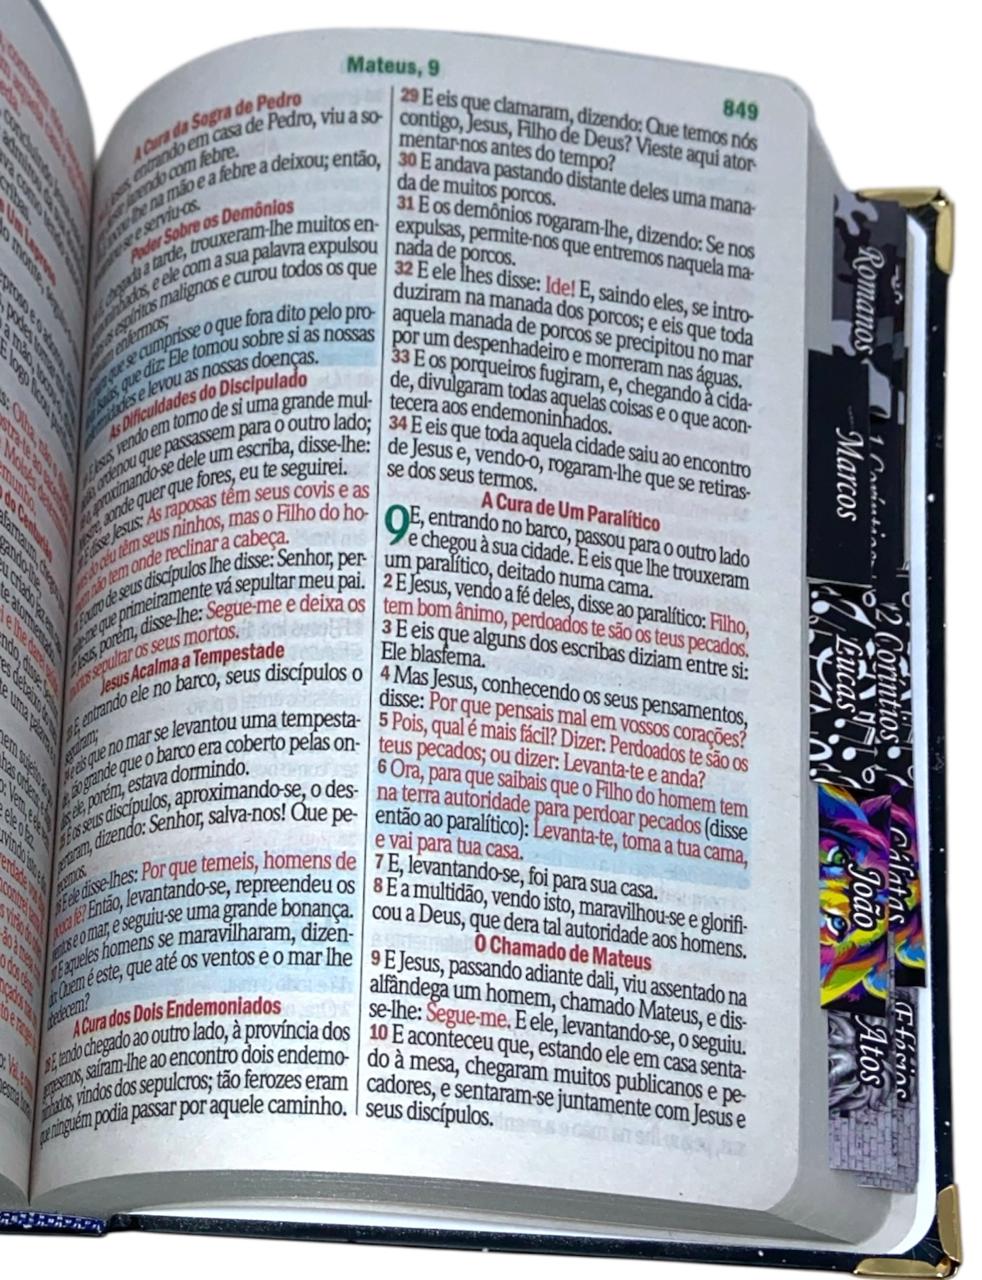 Mateus, 9
849
A Cura da Sogra de Pedro
entrando em casa de Pedro, viu a so-
jazendo com febre.
na mão e a febre a deixou; então,
e serviu-os.
Poder Sobre os Demônios
chegada a tarde, trouxeram-lhe muitos en-
e ele com a sua palavra expulsou
os espíritos malignos e curou todos os que
enfermos;
que se cumprisse o que fora dito pelo pro-
Isaías, que diz: Ele tomou sobre si as nossas
e levou as nossas doenças.
As Dificuldades do Discipulado
E Jesus, vendo em torno de si uma grande mul-
ordenou que passassem para o outro lado;
aproximando-se dele um escriba, disse-lhe:
aonde quer que fores, eu te seguirei.
E disse Jesus: As raposas têm seus covis e as
do céu têm seus ninhos, mas o Filho do ho-
não tem onde reclinar a cabeça.
E outro de seus discípulos lhe disse: Senhor, per-
que primeiramente vá sepultar meu pai.
Jesus, porém, disse-lhe: Segue-me e deixa os
mortos sepultar os seus mortos.
Jesus Acalma a Tempestade
E, entrando ele no barco, seus discípulos o
seguiram;
e eis que no mar se levantou uma tempesta-
tão grande que o barco era coberto pelas on-
ele, porém, estava dormindo.
E os seus discípulos, aproximando-se, o des-
pertaram, dizendo: Senhor, salva-nos! Que pe-
recemos.
E ele disse-lhes: Por que temeis, homens de
pouca fé? Então, levantando-se, repreendeu os
ventos e o mar, e seguiu-se uma grande bonança.
E aqueles homens se maravilharam, dizen-
do: Quem é este, que até os ventos e o mar lhe
obedecem?
A Cura dos Dois Endemoniados
E, tendo chegado ao outro lado, à província dos
gergesenos, saíram-lhe ao encontro dois endemo-
ninhados, vindos dos sepulcros; tão ferozes eram
que ninguém podia passar por aquele caminho.
29 E eis que clamaram, dizendo: Que temos nós
contigo, Jesus, Filho de Deus? Vieste aqui ator-
mentar-nos antes do tempo?
30 E andava pastando distante deles uma mana-
da de muitos porcos.
31 E os demônios rogaram-lhe, dizendo: Se nos
expulsas, permite-nos que entremos naquela ma-
nada de porcos.
32 E ele lhes disse: Ide! E, saindo eles, se intro-
duziram na manada dos porcos; e eis que toda
aquela manada de porcos se precipitou no mar
por um despenhadeiro e morreram nas águas.
33 E os porqueiros fugiram, e, chegando à cida-
de, divulgaram todas aquelas coisas e o que acon-
tecera aos endemoninhados.
34 E eis que toda aquela cidade saiu ao encontro
de Jesus e, vendo-o, rogaram-lhe que se retiras-
se dos seus termos.
A Cura de Um Paralítico
9 E, entrando no barco, passou para o outro lado
e chegou à sua cidade. E eis que lhe trouxeram
um paralítico, deitado numa cama.
2 E Jesus, vendo a fé deles, disse ao paralítico: Filho,
tem bom ânimo, perdoados te são os teus pecados.
3 E eis que alguns dos escribas diziam entre si:
Ele blasfema.
4 Mas Jesus, conhecendo os seus pensamentos,
disse: Por que pensais mal em vossos corações?
5 Pois, qual é mais fácil? Dizer: Perdoados te são os
teus pecados; ou dizer: Levanta-te e anda?
6 Ora, para que saibais que o Filho do homem tem
na terra autoridade para perdoar pecados (disse
então ao paralítico): Levanta-te, toma a tua cama,
e vai para tua casa.
7 E, levantando-se, foi para sua casa.
8 E a multidão, vendo isto, maravilhou-se e glorifi-
cou a Deus, que dera tal autoridade aos homens.
O Chamado de Mateus
9 E Jesus, passando adiante dali, viu assentado na
alfândega um homem, chamado Mateus, e dis-
se-lhe: Segue-me. E ele, levantando-se, o seguiu.
10 E aconteceu que, estando ele em casa senta-
do à mesa, chegaram muitos publicanos e pe-
cadores, e sentaram-se juntamente com Jesus e
seus discípulos.
Romanos
Marcos
Lucas
2 Coríntios
João
Gálatas
Atos
Efésios